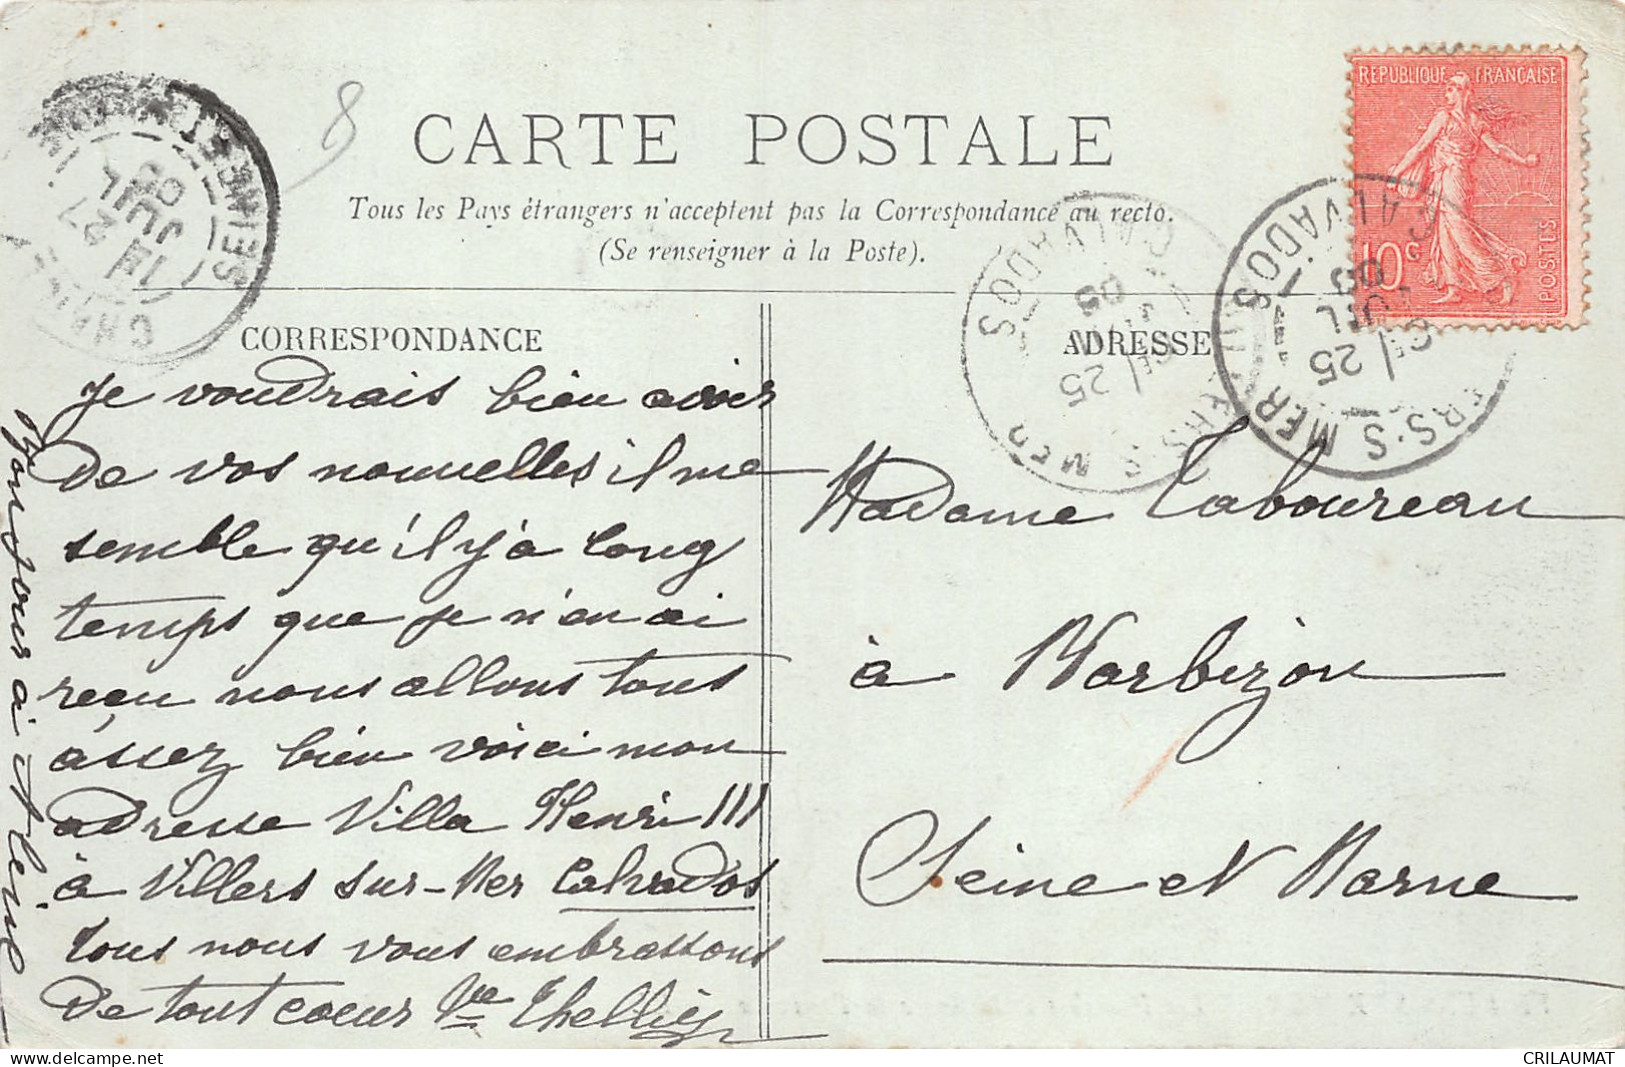 CARTE POSTALE
Tous les Pays étrangers n'acceptent pas la Correspondance au recto.
(Se renseigner à la Poste).
REPUBLIQUE FRANÇAISE
10c
POSTES
8
SEINE-ET-MARNE
27
JUIL
05
VILLERS-S-MER
CALVADOS
25
JUIL
05
CALVADOS
25
05
CORRESPONDANCE
Je voudrais bien avoir
de vos nouvelles il me
semble qu'il y'a long
temps que je n'en ai
reçu nous allons tous
assez bien voici mon
adresse Villa Henri III
à Villers sur-Mer Calvados
tous nous vous embrassons
de tout coeur Vve Thellier
Bonjours à Aline
ADRESSE
Madame Taboureau
à Marbizon
Seine et Marne
CRILAUMAT